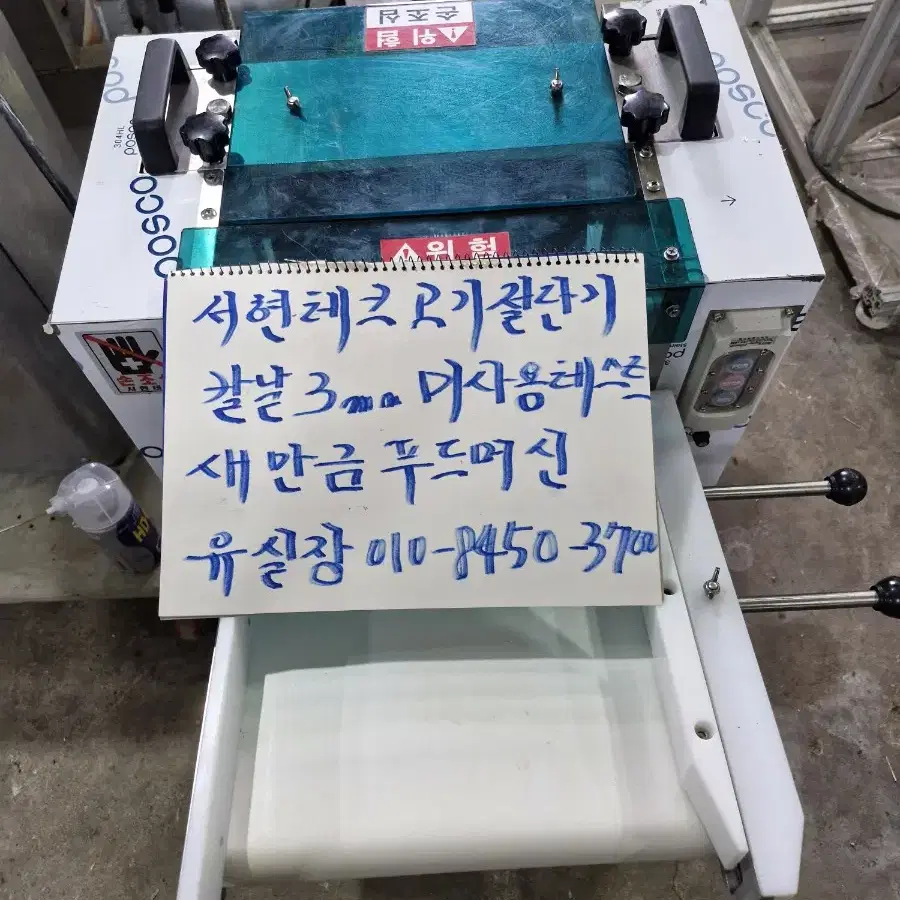 손조심
위험
posco
304HL
posco
posco
posco
위험
서현테크 고기절단기
칼날 3mm 미사용테스트
새만금 푸드머신
유실장 010-8450-3700
손조
서현테
HD